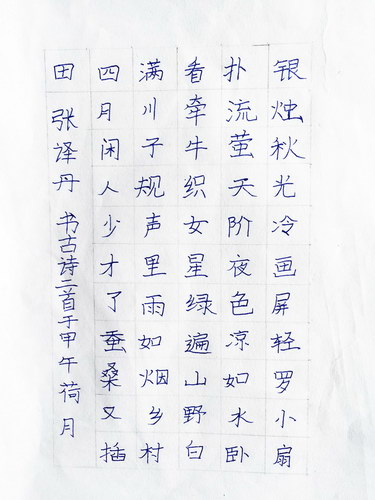 银烛秋光冷画屏轻罗小扇
扑流萤天阶夜色凉如水卧
看牵牛织女星绿遍山野白
满川子规声里雨如烟乡村
四月闲人少才了蚕桑又插
田 张译丹 书古诗二首于甲午荷月